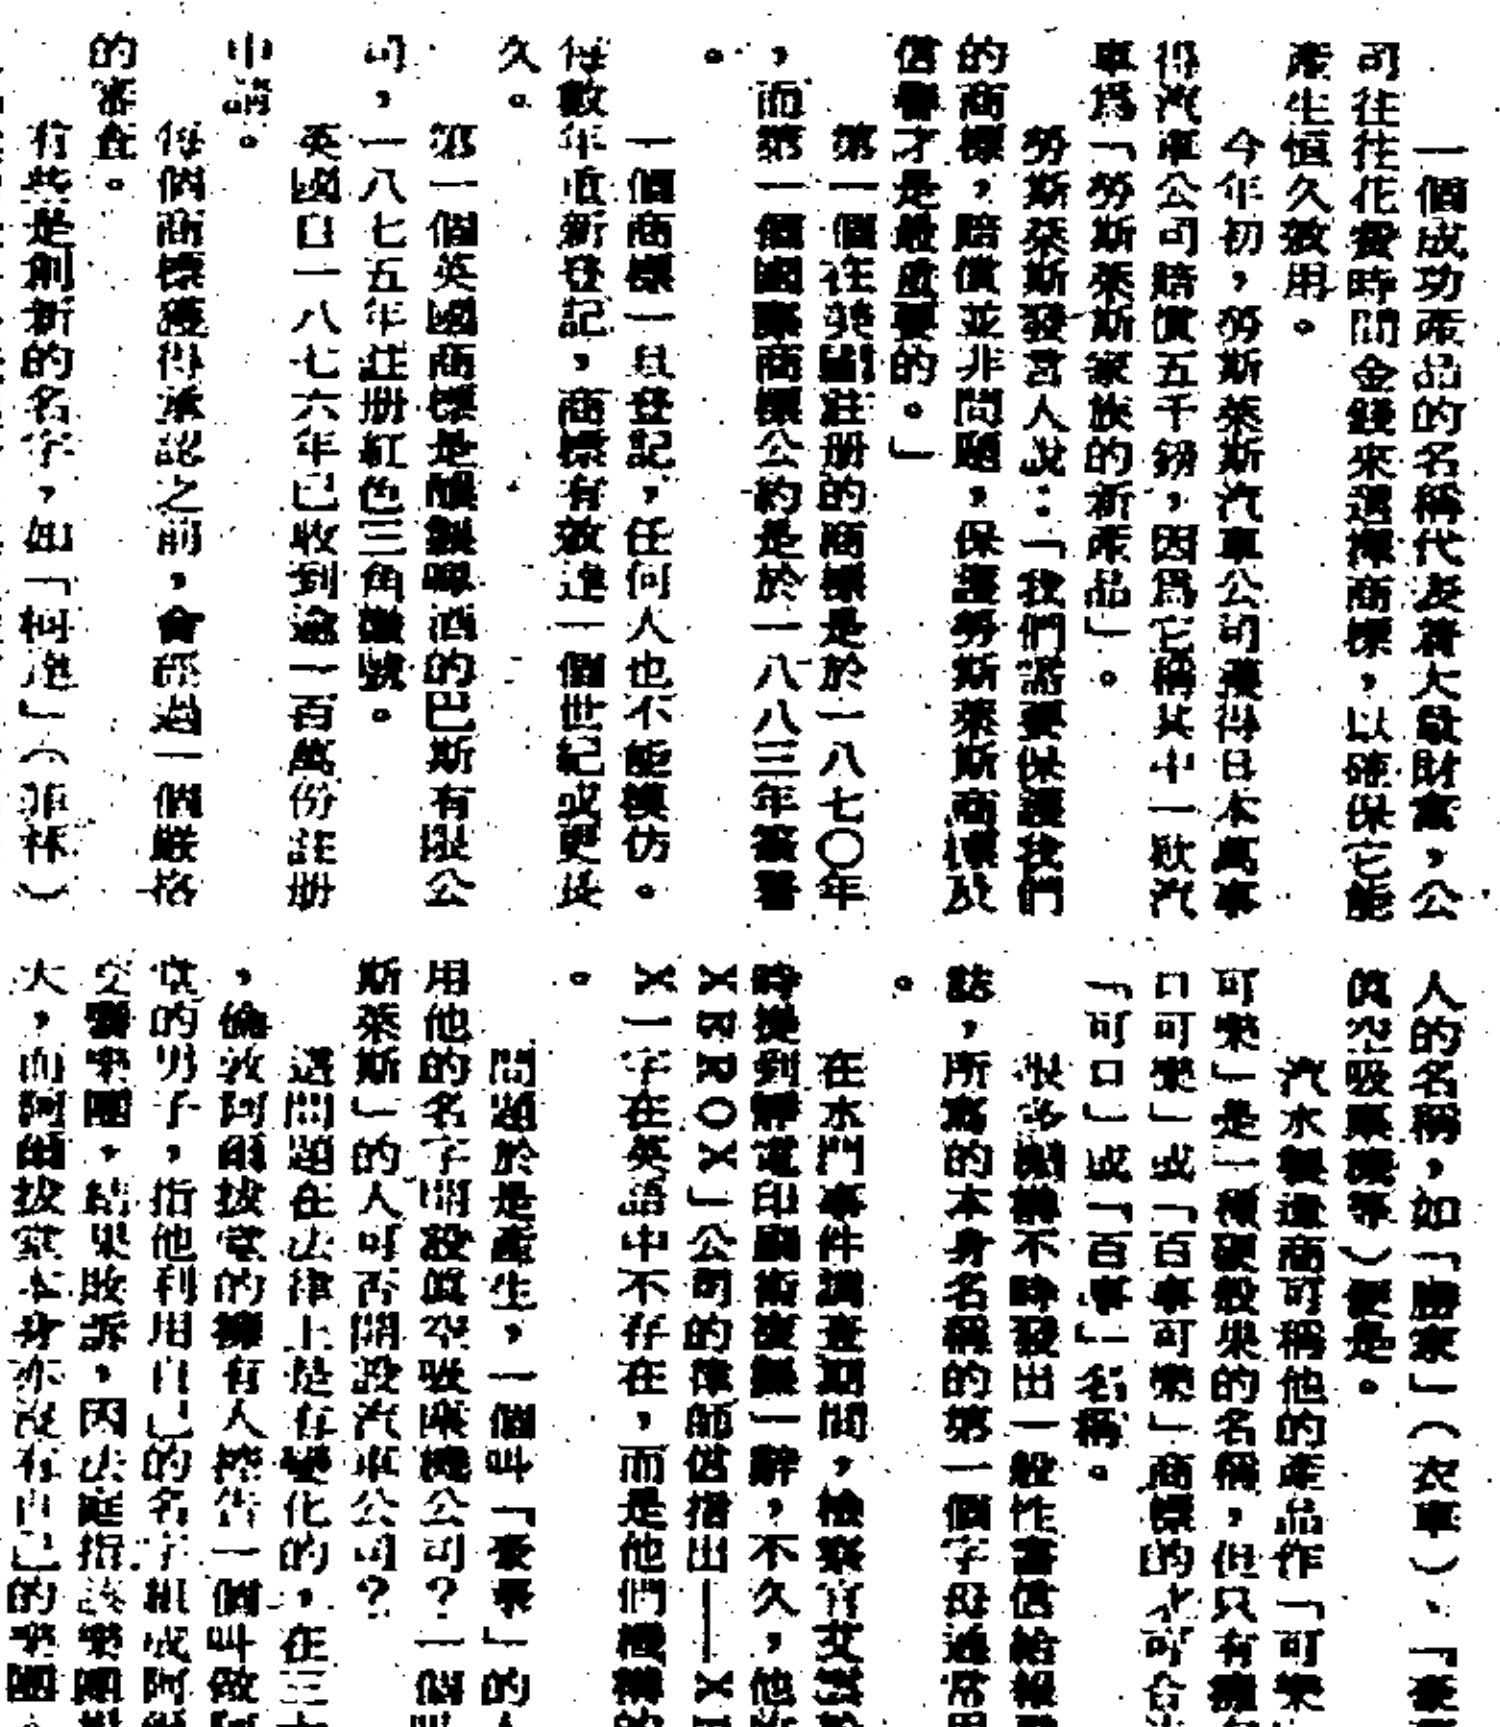 一個成功產品的名稱代表着大量財富，公
司往往花費時間金錢來選擇商標，以確保它能
產生恒久效用。
今年初，勞斯萊斯汽車公司獲得日本萬事
得汽車公司賠償五千鎊，因爲它稱其中一款汽
車爲「勞斯萊斯家族的新產品」。
勞斯萊斯發言人說：「我們需要保護我們
的商標，賠償並非問題，保護勞斯萊斯商標及
信譽才是最重要的。」
第一個在英國註册的商標是於一八七〇年
，而第一個國際商標公約是於一八八三年簽署
。
一個商標一旦登記，任何人也不能模仿。
每數年重新登記，商標有效達一個世紀或更長
久。
第一個英國商標是釀製啤酒的巴斯有限公
司，一八七五年註册紅色三角徽號。
英國自一八七六年已收到逾一百萬份註册
申請。
每個商標獲得承認之前，會經過一個嚴格
的審查。
有些是創新的名字，如「柯達」（菲林）
人的名稱，如「勝家」（衣車）、「豪
眞空吸塵機等）便是。
汽水製造商可稱他的產品作「可樂
可樂」是一種硬殼果的名稱，但只有擁
口可樂」或「百事可樂」商標的才可合
「可口」或「百事」名稱。
很多機構不時發出一般性書信給報
誌，所寫的本身名稱的第一個字母通常用
。
在水門事件調查期間，檢察官艾
時提到靜電印刷術複製一辭，不久，他
ＸＲＲＯＸ」公司的律師信指出——Ｘ
Ｘ一字在英語中不存在，而是他們機構的
。
問題於是產生，一個叫「豪華」的
用他的名字開設眞空吸塵機公司？一個
斯萊斯」的人可否開設汽車公司？
這問題在法律上是有變化的，在三
，倫敦阿爾拔堂的擁有人控告一個叫做阿
堂的男子，指他利用自己的名字組成阿爾
交響樂團，結果敗訴，因法庭指該樂團
大，而阿爾拔堂本身亦沒有自己的樂團